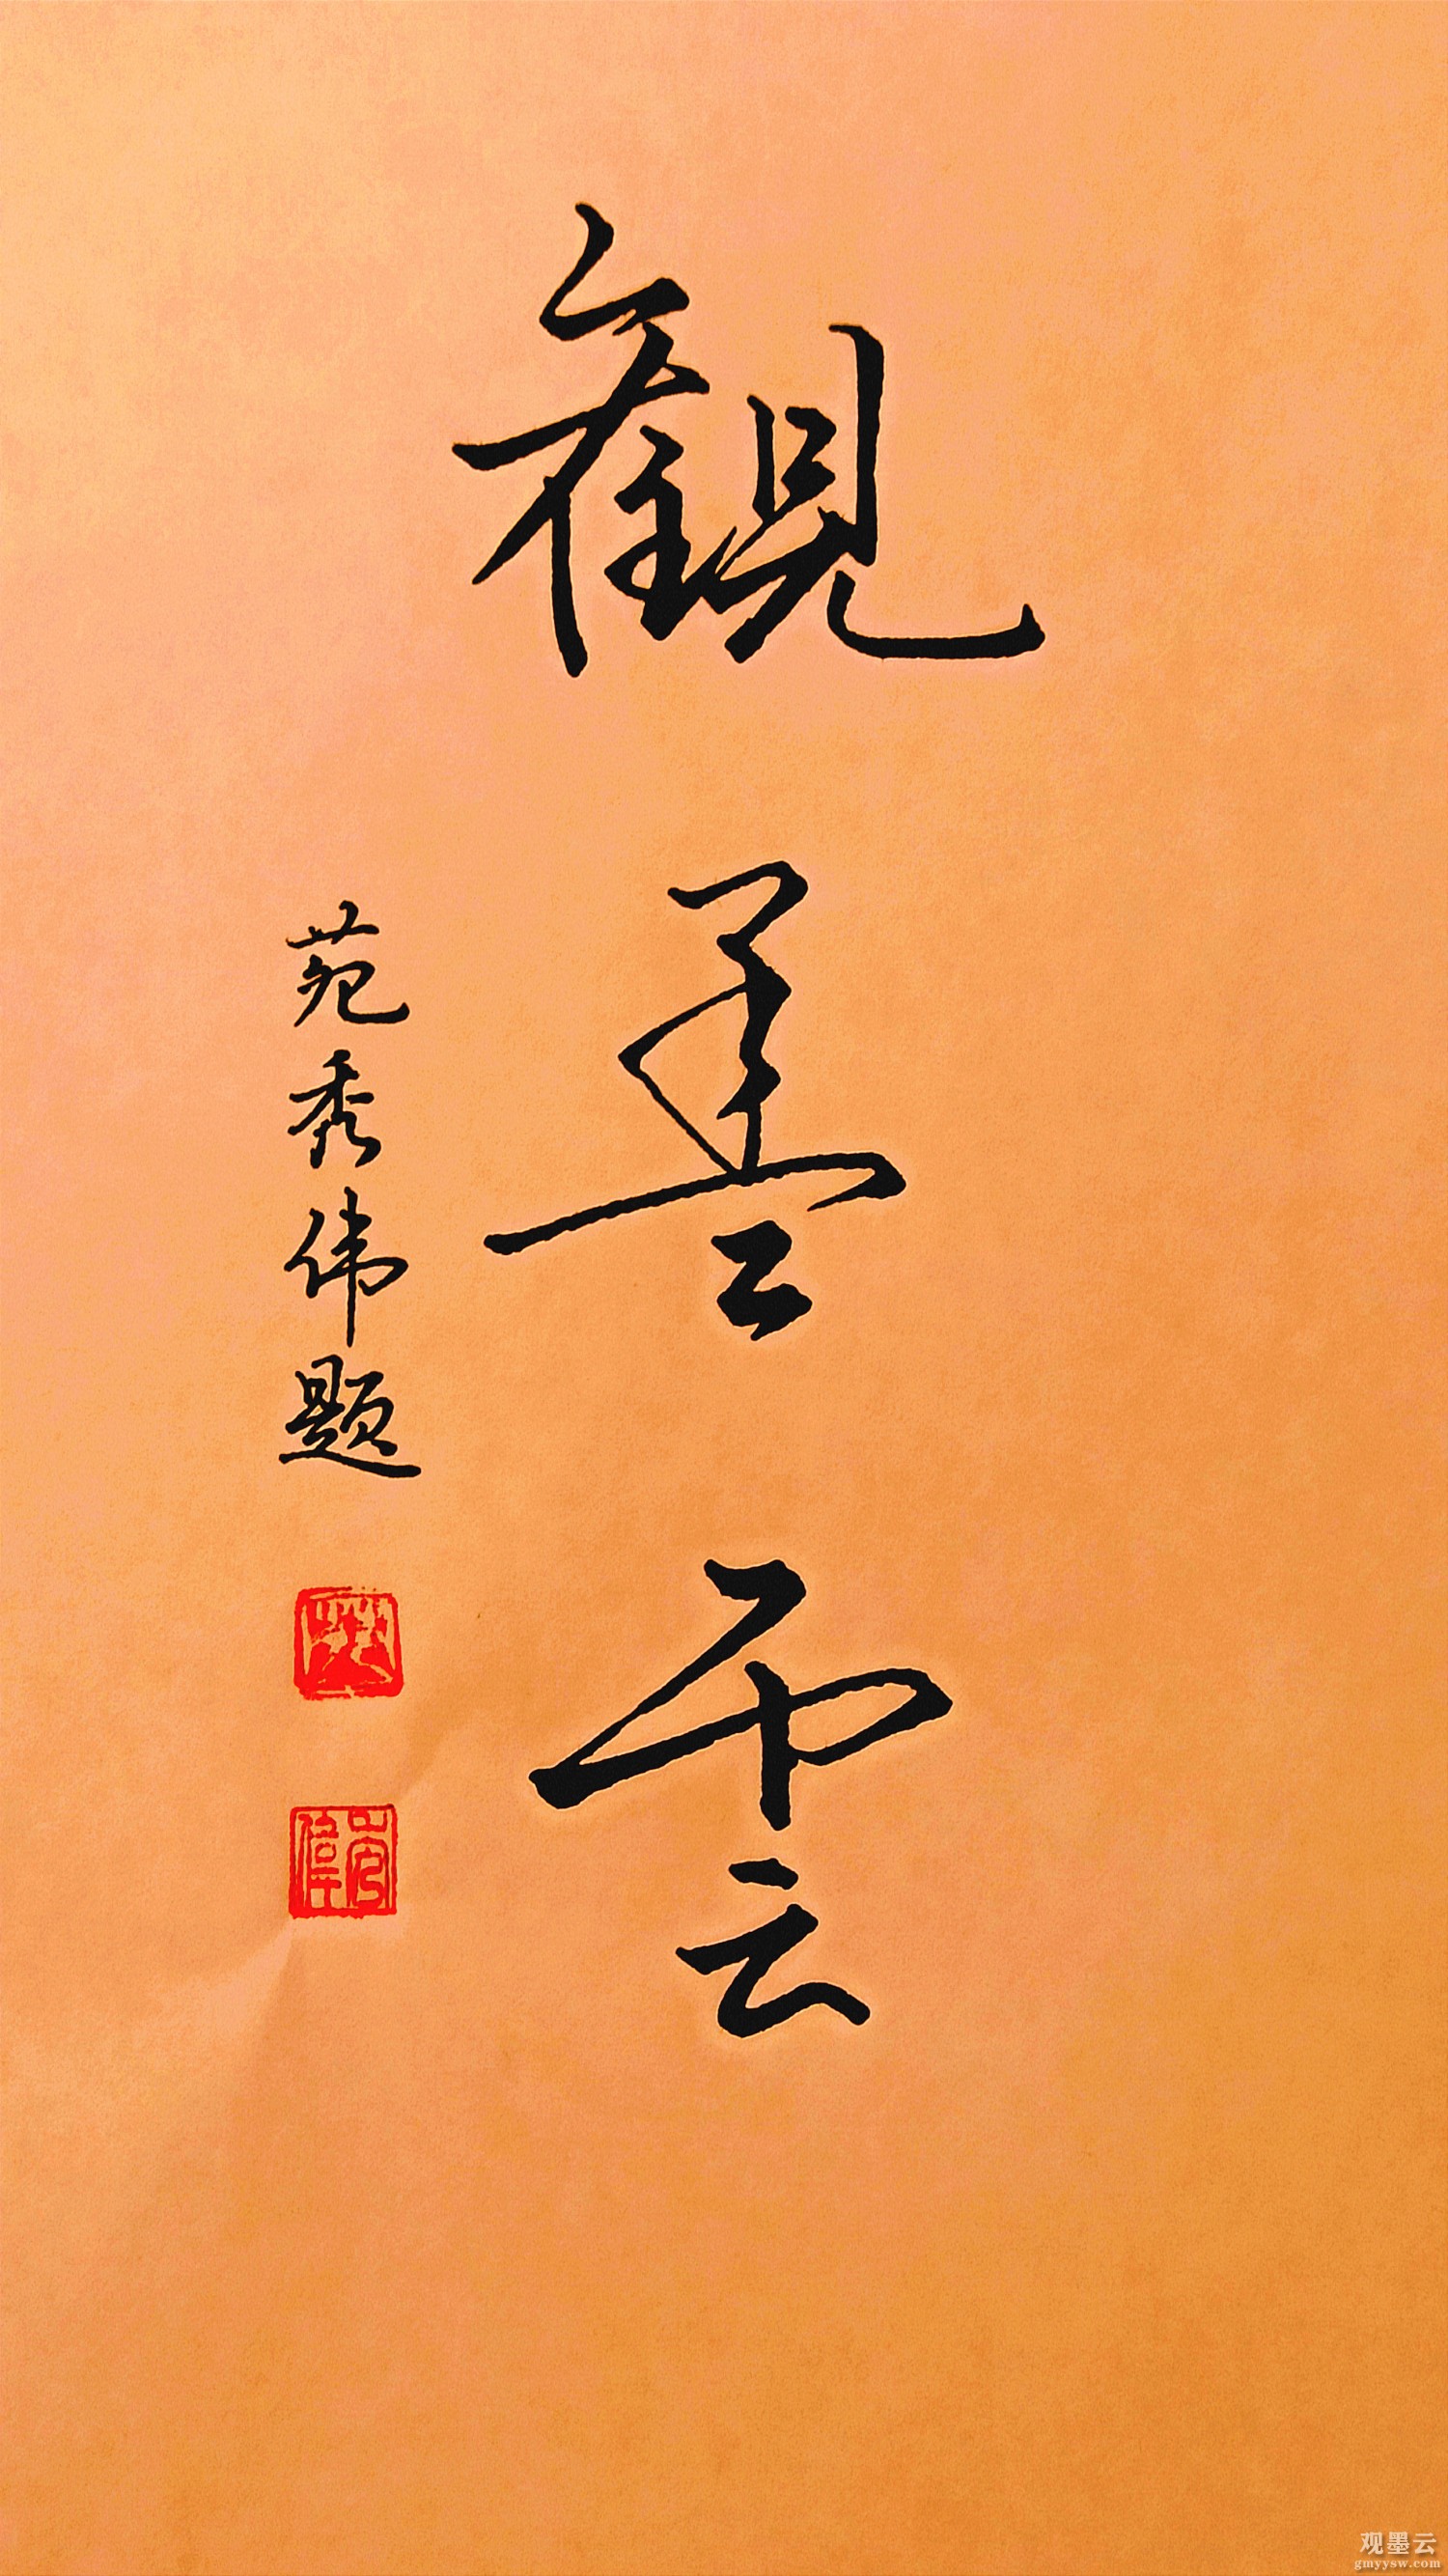 觀墨雲
苑秀伟题
观墨云
gmyysw.com